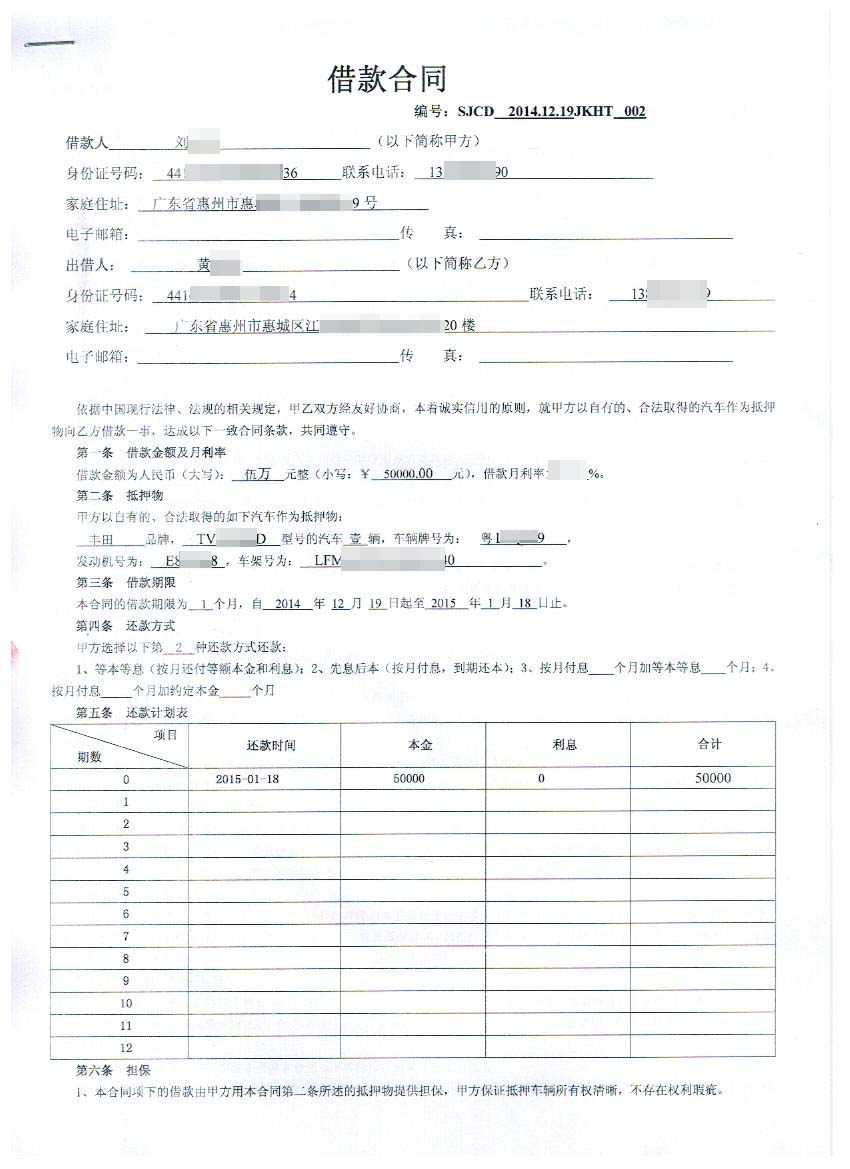 借款合同
编号：SJCD 2014.12.19JKHT 002
借款人 刘 （以下简称甲方）
身份证号码： 441 36 联系电话： 13 90
家庭住址： 广东省惠州市惠 9 号
电子邮箱： 传 真：
出借人： 黄 （以下简称乙方）
身份证号码： 441 4 联系电话： 138 9
家庭住址： 广东省惠州市惠城区江 20 楼
电子邮箱： 传 真：
依据中国现行法律、法规的相关规定，甲乙双方经友好协商，本着诚实信用的原则，就甲方以自有的、合法取得的汽车作为抵押
物向乙方借款一事，达成以下一致合同条款，共同遵守。
第一条 借款金额及月利率
借款金额为人民币（大写）： 伍万 元整（小写：￥ 50000.00 元），借款月利率 %。
第二条 抵押物
甲方以自有的、合法取得的如下汽车作为抵押物：
丰田 品牌， TV D 型号的汽车 壹 辆，车辆牌号为： 粤L 9 ，
发动机号为： E8 8 ，车架号为： LFM 40 。
第三条 借款期限
本合同的借款期限为 1 个月，自 2014 年 12 月 19 日起至 2015 年 1 月 18 日止。
第四条 还款方式
甲方选择以下第 2 种还款方式还款：
1、等本等息（按月还付等额本金和利息）；2、先息后本（按月付息，到期还本）；3、按月付息____个月加等本等息____个月；4、
按月付息____个月加约定本金____个月
第五条 还款计划表
项目 期数 还款时间 本金 利息 合计
0 2015-01-18 50000 0 50000
1
2
3
4
5
6
7
8
9
10
11
12
第六条 担保
1、本合同项下的借款由甲方用本合同第二条所述的抵押物提供担保，甲方保证抵押车辆所有权清晰，不存在权利瑕疵。